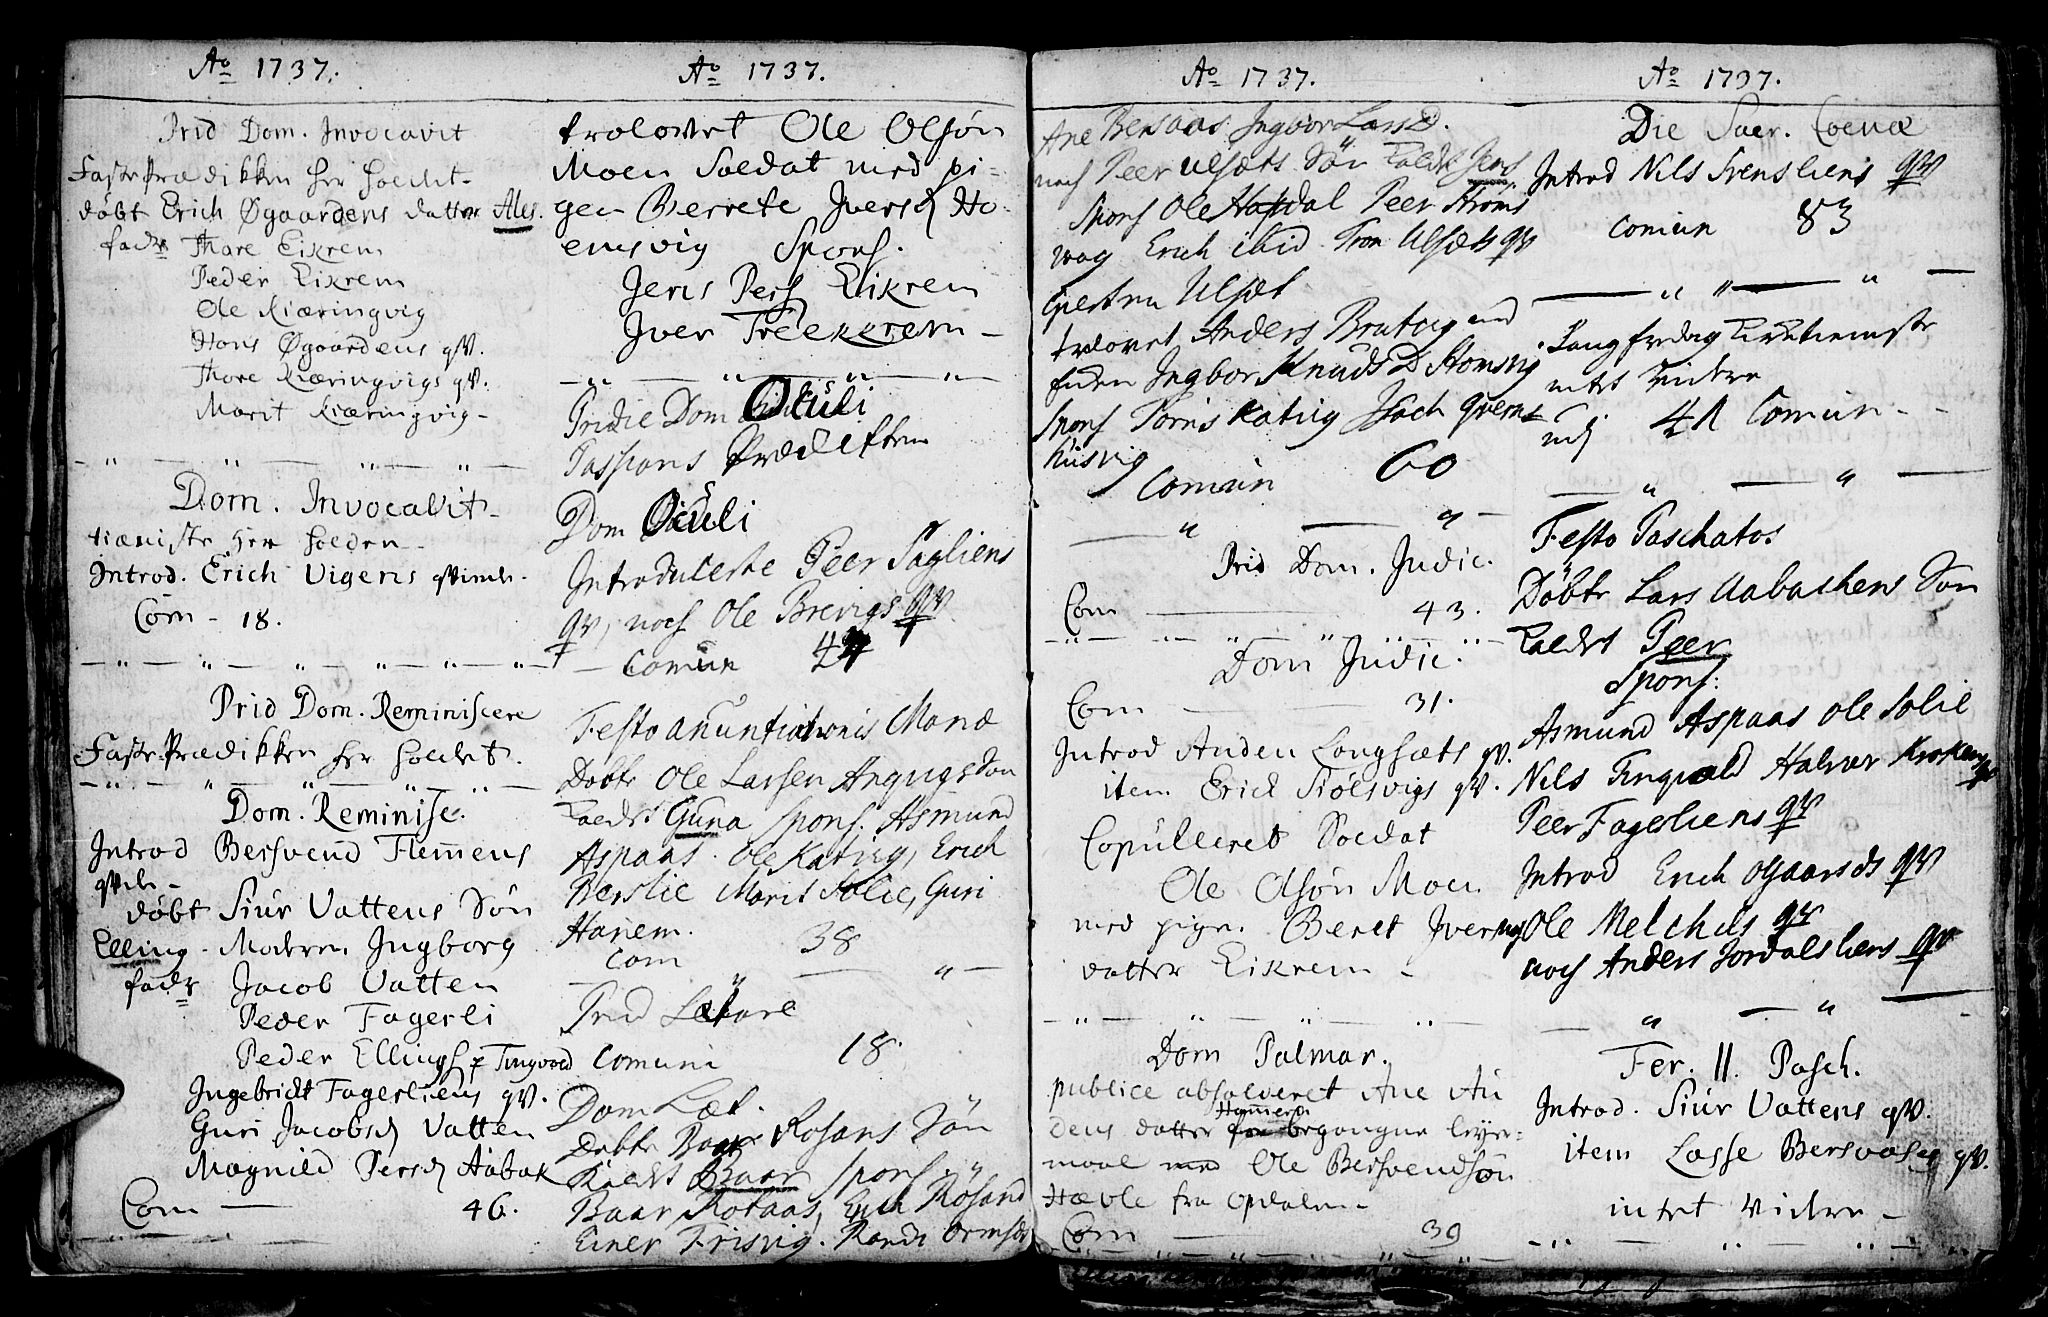 Ao 1737.
Prid Dom. Invocavit
FastePrædikken her holdet.
døbt Erich Øgaardens datter Ales.
fadr Thore Eikrem
Peder Eikrem
Ole Kiæringvig
Hans Øgaardens qv.
Thore Kiæringvigs qv.
Marit Kiæringvig
Dom. Invocavit
tieniste her holden
Introd. Erich Vigens qvinde.
Com - 18.
Prid Dom. Reminiscere
FastePrædikken her holdet.
Dom. Reminisc.
Introd Bersvend Flemmens
døbt Siur Vattens Søn
Elling. Modern. Ingborg
fadr Jacob Vatten
Peder Fagerli
Peder Ellings Tingvold
Ingebricht Fagerliens qv.
Guri Jacobsd Vatten
Magnild Persd Aabak
Com — 46.
Ao 1737.
trolovet Ole Olsøn
Moen Soldat med pi-
gen Berrete Iversd Ho-
emsvig Spons.
Jens Pers Eikrem
Iver Treekrem
Pridie Dom Oculi
Passions Prædiken
Dom Oculi
Introducerte Peer Fagliens
qv, noch Ole Brevigs qv
Comun
Festo anuntiationis Mariæ
Døbte Ole Larsen Angvigs Søn
kaldet Guna Spons. Asmund
Aspaas. Ole Katvig, Erich
Berslie Marit Solie, Guri
Hanem.
Com 38
Prid Lætare
Comuni 18.
Dom Læt.
Døbte Baar Rosans Søn
kaldet Baar Spons.
Baar Rotaas, Erich Røsand
Einer Frisvig. Randi Ormsd
Ao 1737.
Ane Bersaas Ingbor LarsD.
noch Peer Ulsæts Søn kaldet Jens
Spons Ole Hafdal Peer Strøms
wag Erich ibid Tron Ulsæts qv
Ulsæt
trolovet Anders Brutvig med
Ingbor KnudsD Homsvig
Spons Tøris Katvig Isach Qverne
husvig
Comun 60
Prid Dom. Judic.
Com — 43.
Dom Judic.
Com — 31.
Introd Anden Longsæts qv.
item Erich Siølsvigs qv.
Copulleret Soldat
Ole Olsøn Moen
med pigen Beret Ivers
datter Eikrem
Dom Palmar.
publice absolveret Ane An
dens datter Hamern for begangne leyer-
maal med Ole Bersvendsøn
Hævle fra Opdalen
Com — 39
Ao 1737.
Die Sacr. Coenæ
Introd Nils Svensliens qv
comun 83
Langfredag
intet videre
41 Comun
Festo Paschatos
Døbte Lars Aabachens Søn
kaldet Peer
Spons:
Asmund Aspaas Ole Solie
Nils Tingvold Halvor Kroken
Peer Fagerliens qv
Introd Erich Øgaards qv
Ole Melchils qv
noch Anders Jordalsliens qv
Fer. II. Pasch.
Introd. Siur Vattens qv.
item Lasse Bersvas qv.
intet videre